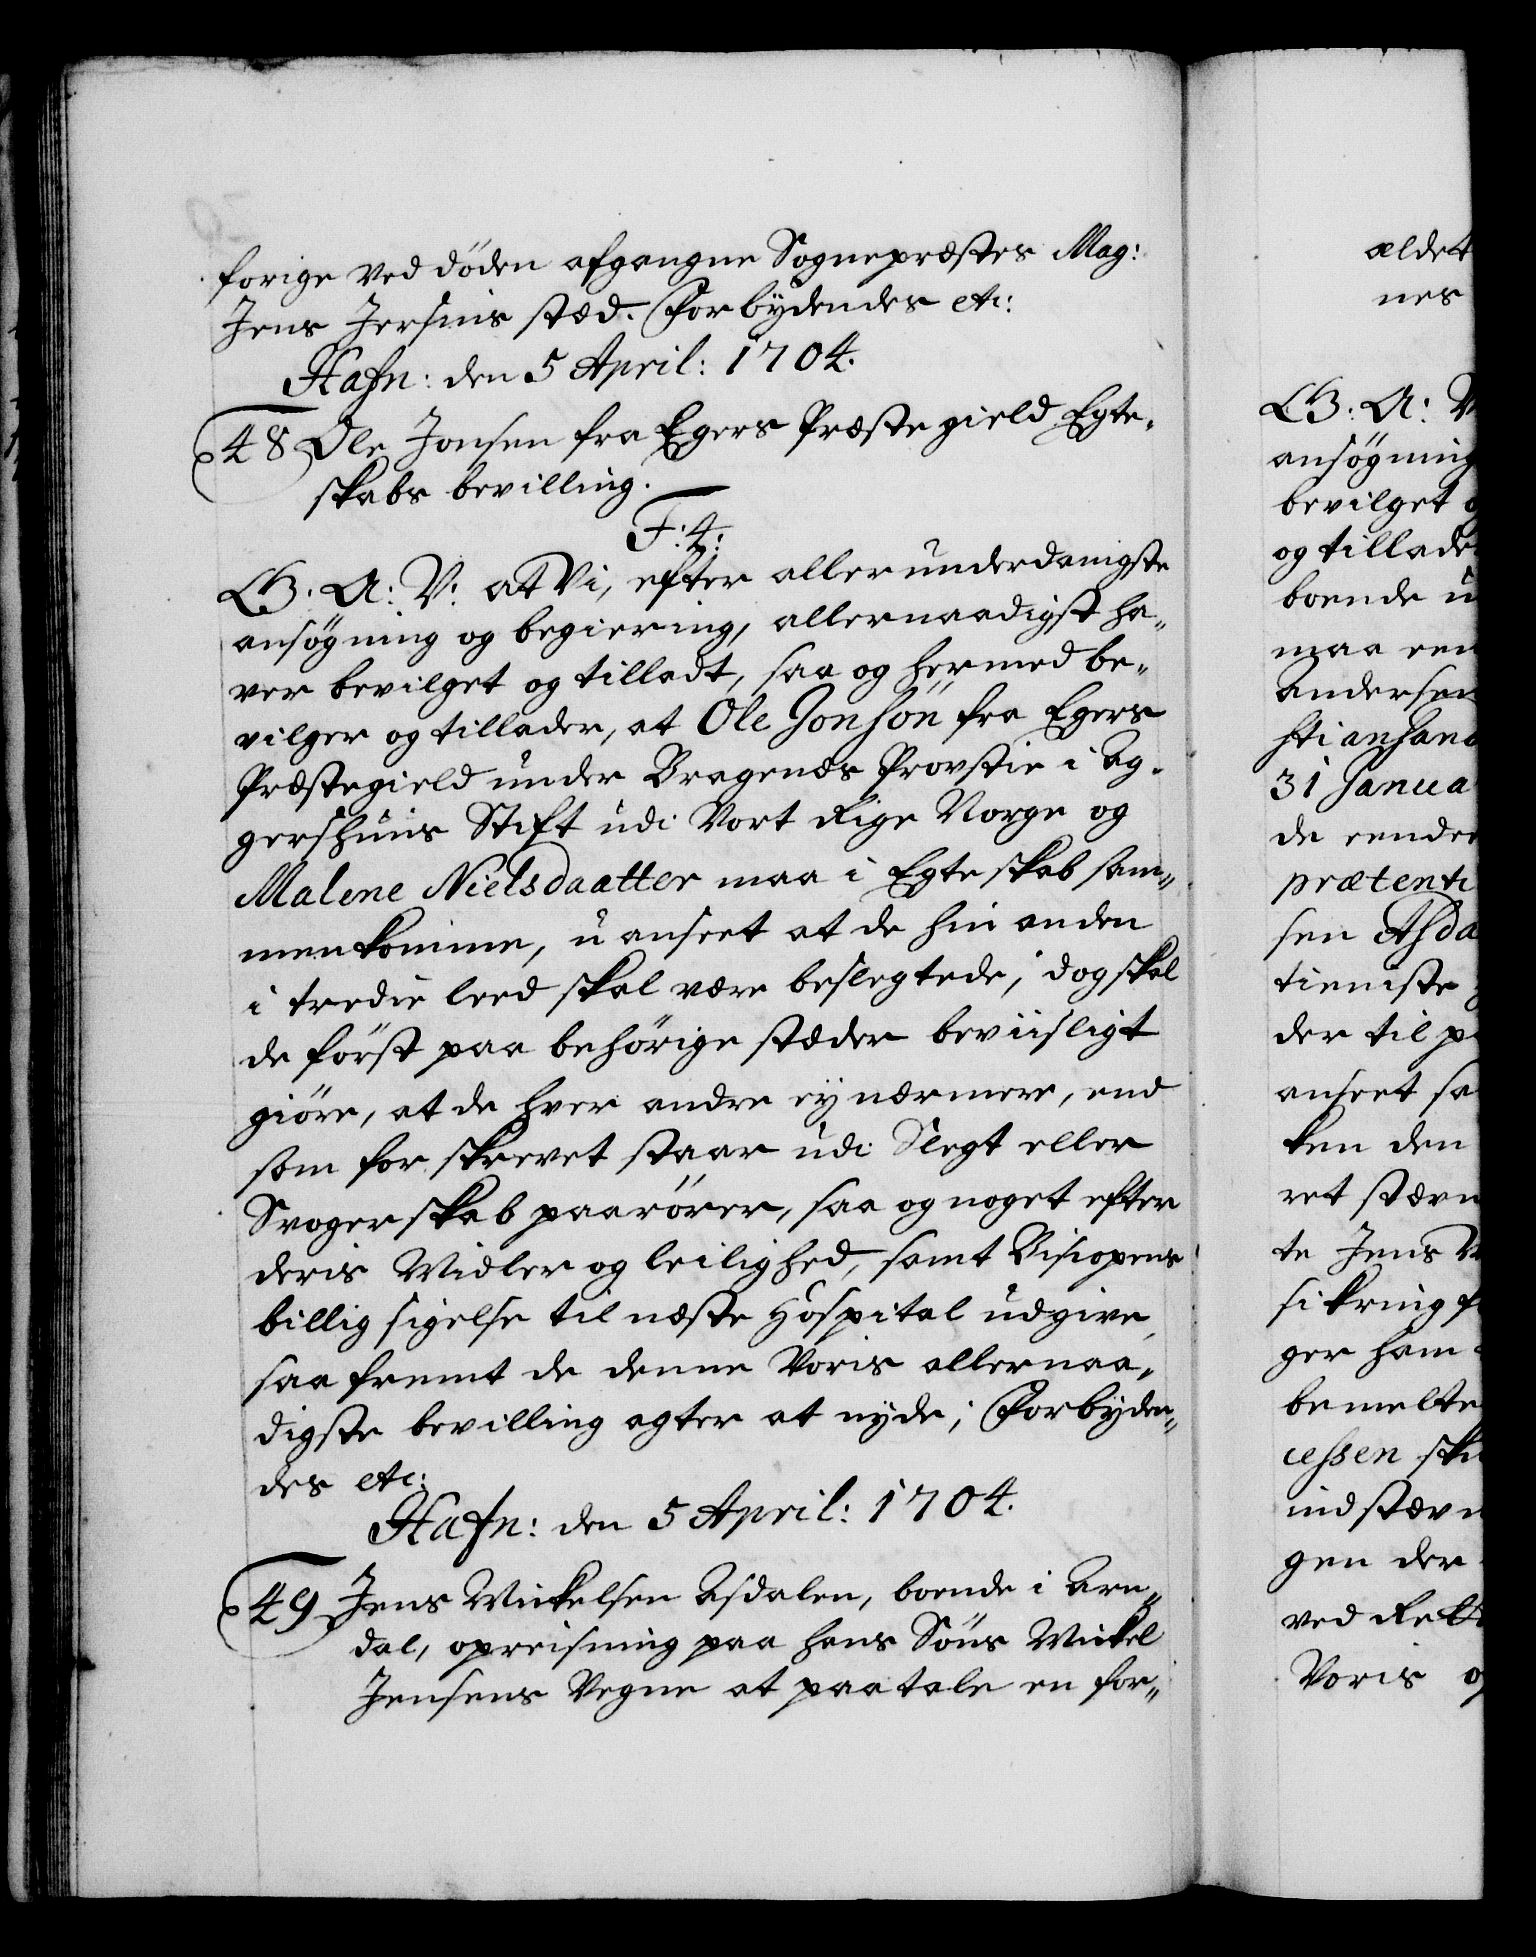 forige ved döden afgangne Sognepræstes Mag:
Jens Jersins stæd. Forbÿdendes etc:
Hafn: den 5 April: 1704.
48 Ole Jonsen fra Egers Præstegield Egte„
skabs bevilling.
F: 4:
G. A: V: at Vi, efter allerunderdanigste
ansøgning og begiering, allernaadigst ha„
ver bevilget og tilladt, saa og hermed be„
vilger og tillader, at Ole Jonsön fra Egers
Præstegield under Bragenæs Provstie i Ag„
gershuus Stift udi Vort Rige Norge og
Malene Nielsdaatter maa i Egteskab sam„
menkomme, uanseet at de hin anden
i tredie leed skal være beslegtede; dog skal
de först paa behörige stæder beviisligt
giöre, at de hver andre eÿ nærmere, end
som for skrevet staar udi Slegt eller
Svogerskab paarörer, saa og noget efter
deris Midler og leilighed, samt Bisiopens
billig sigelse til næste Hospital udgive,
saa fremt de denne Voris allernaa„
digste bevilling agter at nÿde; Forbÿden„
des etc:
Hafn: den 5 April: 1704.
49 Jens Mickelsen Asdalen, boende i Aren„
dal, opreisning paa hans Söns Mickel
Jensens Vegne at paatale en for„
ældet
nes
G: A: V
ansøgning
bevilget o
og tillade
boende u
maa een
Andersen
stiansand
31 Janua
de eender
prætenti
sen Asda
tieniste
der til p
anseet sa
ken den
ret stævn
te Jens M
sikring f
ger ham
bemelte
cessen sku
indstævn
gen der
ved Rett
Voris o